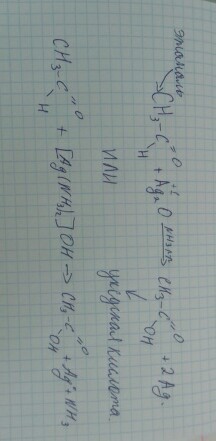 этаналь
CH₃-C(=O)H + Ag₂⁺¹O —NH₃, t°→ CH₃-C(=O)OH + 2Ag
ИЛИ уксусная кислота
CH₃-C(=O)H + [Ag(NH₃)₂]OH → CH₃-C(=O)OH + Ag + NH₃